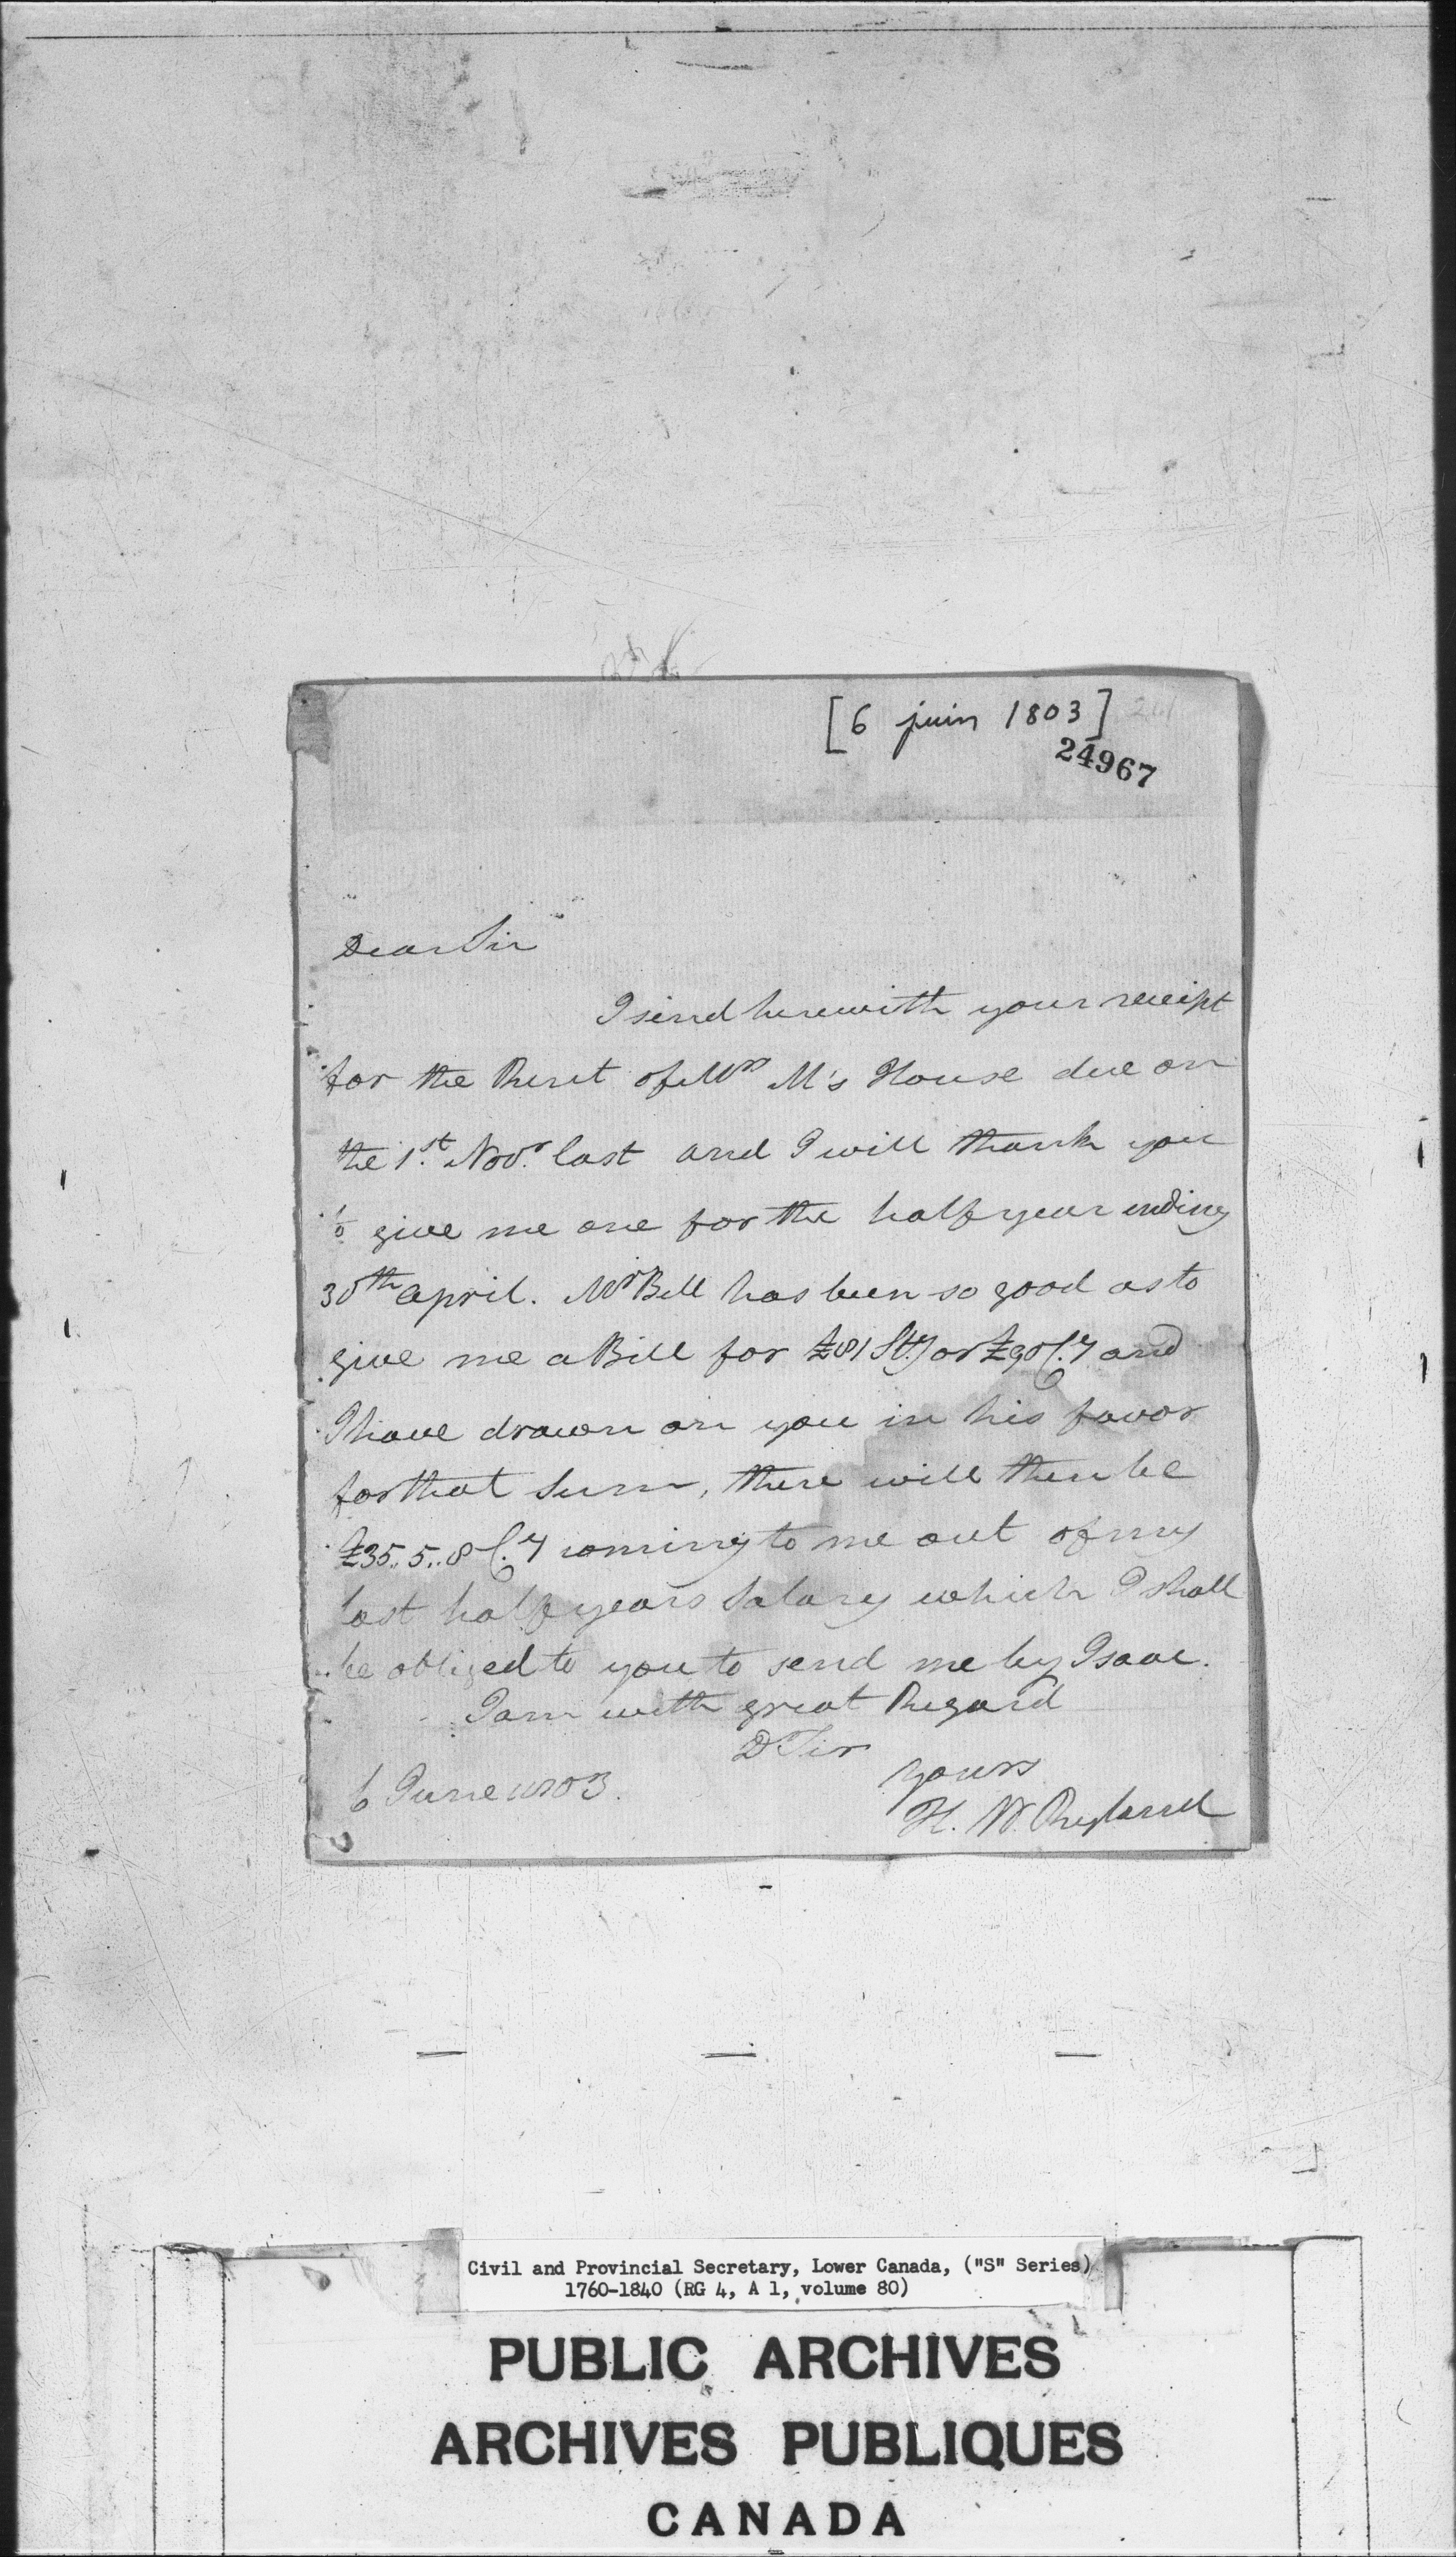 [6 juin 1803]
24967
Dear Sir
I send herewith your receipt
for the Rent of Mrs M's House due on
the 1st. Novr. last and I will thank you
to give me one for the half year ending
30th April. Mr Bell has been so good as to
give me a Bill for £81 Stg or £90 C.y and
I have drawn on you in his favor
for that Sum, there will then be
£35..5..8 C.y coming to me out of my
last half years Salary which I shall
be obliged to you to send me by Isaac.
I am with great Regard
D Sir
Yours
6 June 1803.
H. W. Ryland
Civil and Provincial Secretary, Lower Canada, ("S" Series)
1760-1840 (RG 4, A 1, volume 80)
PUBLIC ARCHIVES
ARCHIVES PUBLIQUES
CANADA